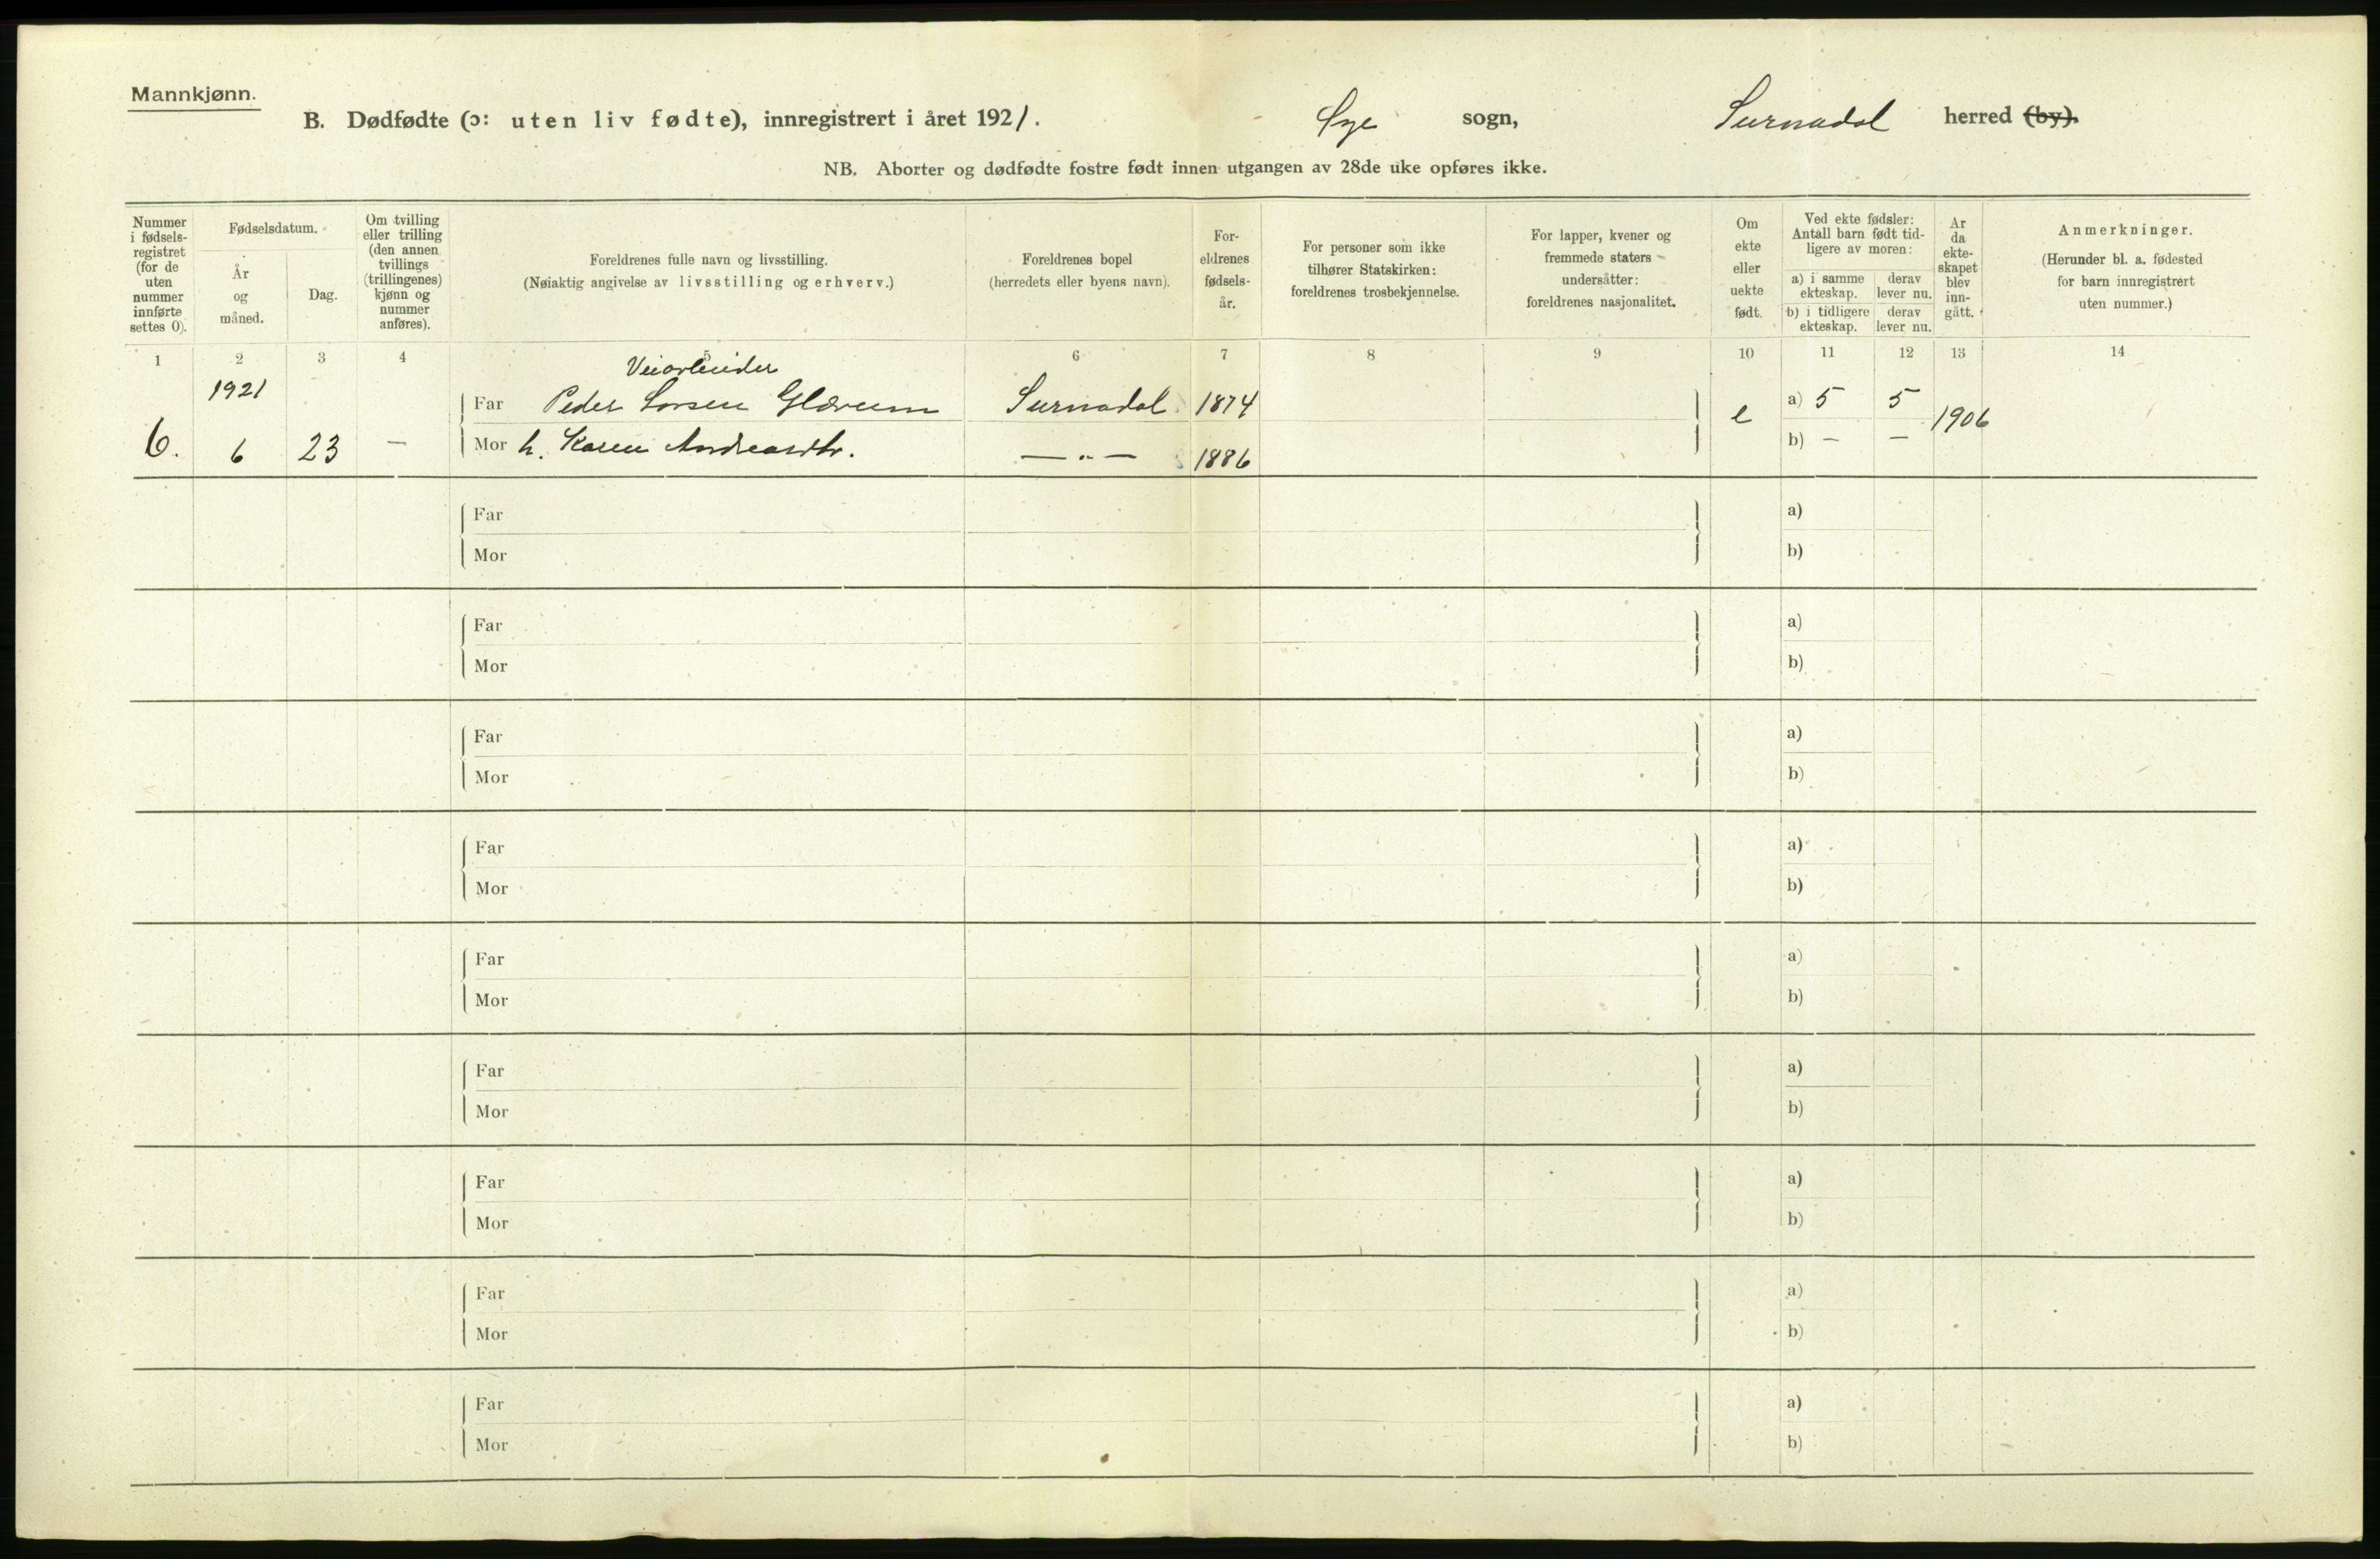 Mannkjønn.
B. Dødfødte (ɔ: uten liv fødte), innregistrert i året 1921. Øye sogn, Surnadal herred (by).
NB. Aborter og dødfødte fostre født innen utgangen av 28de uke opføres ikke.
Nummer i fødsels- registret (for de uten nummer innførte settes 0).
Fødselsdatum.
År og måned.
Dag.
Om tvilling eller trilling (den annen tvillings (trillingenes) kjønn og nummer anføres).
Foreldrenes fulle navn og livsstilling.
(Nøiaktig angivelse av livsstilling og erhverv.)
Foreldrenes bopel
(herredets eller byens navn).
For- eldrenes fødsels- år.
For personer som ikke
tilhører Statskirken:
foreldrenes trosbekjennelse.
For lapper, kvener og
fremmede staters
undersåtter:
foreldrenes nasjonalitet.
Om ekte eller uekte født.
Ved ekte fødsler:
Antall barn født tid-
ligere av moren:
a) i samme ekteskap.
derav lever nu.
b) i tidligere ekteskap.
derav lever nu.
År da ekte- skapet blev inn- gått.
Anmerkninger.
(Herunder bl. a. fødested
for barn innregistrert
uten nummer.)
1 2 3 4 5 6 7 8 9 10 11 12 13 14
Veiarbeider
1921 Far Peder Larsen Glærum Surnadal 1874 e a) 5 5 1906
6. 6 23 — Mor h. Karen Andreasdtr. — „ — 1886 b) — —
Far a)
Mor b)
Far a)
Mor b)
Far a)
Mor b)
Far a)
Mor b)
Far a)
Mor b)
Far a)
Mor b)
Far a)
Mor b)
Far a)
Mor b)
Far a)
Mor b)